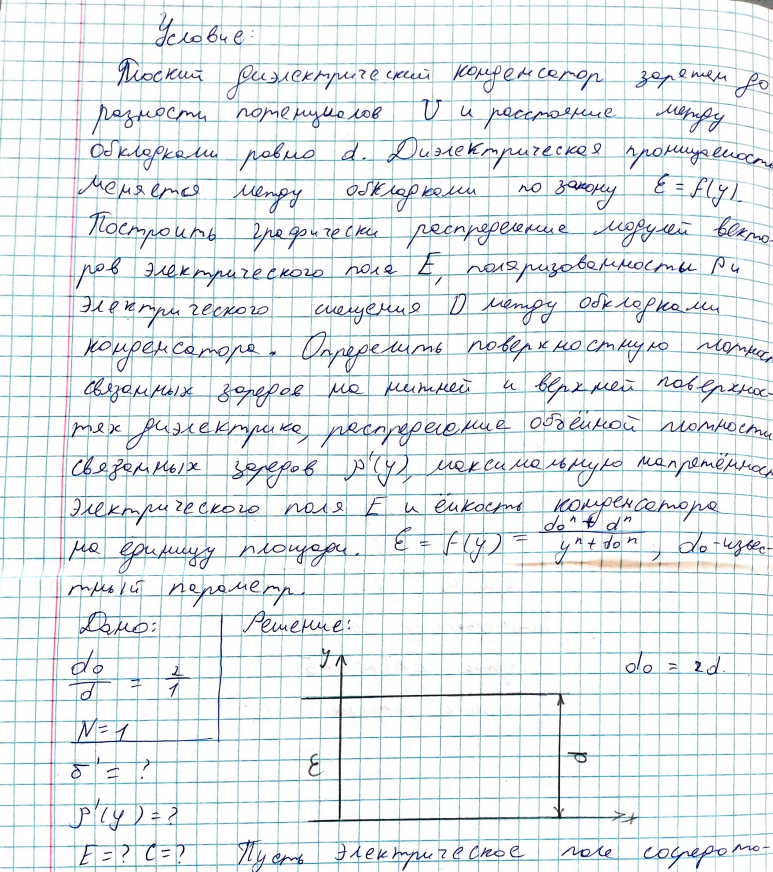 Условие:
Плоский диэлектрический конденсатор заряжен до
разности потенциалов U и расстояние между
обкладками равно d. Диэлектрическая проницаемость
меняется между обкладками по закону ε = f(y).
Построить графически распределение модулей векто-
ров электрического поля E, поляризованности P и
электрического смещения D между обкладками
конденсатора. Определить поверхностную плотност
связанных зарядов на нижней и верхней поверхнос-
тях диэлектрика, распределение объёмной плотности
связанных зарядов ρ'(y), максимальную напряжённост
электрического поля E и ёмкость конденсатора
на единицу площади. ε = f(y) = (d₀ⁿ + dⁿ)/(yⁿ + d₀ⁿ), d₀ - извес-
тный параметр.
Дано: Решение:
d₀/d = 2/1 y d₀ = 2d.
N = 1
ε d
σ' = ?
ρ'(y) = ? x
E = ? C = ? Пусть электрическое поле сосредото-